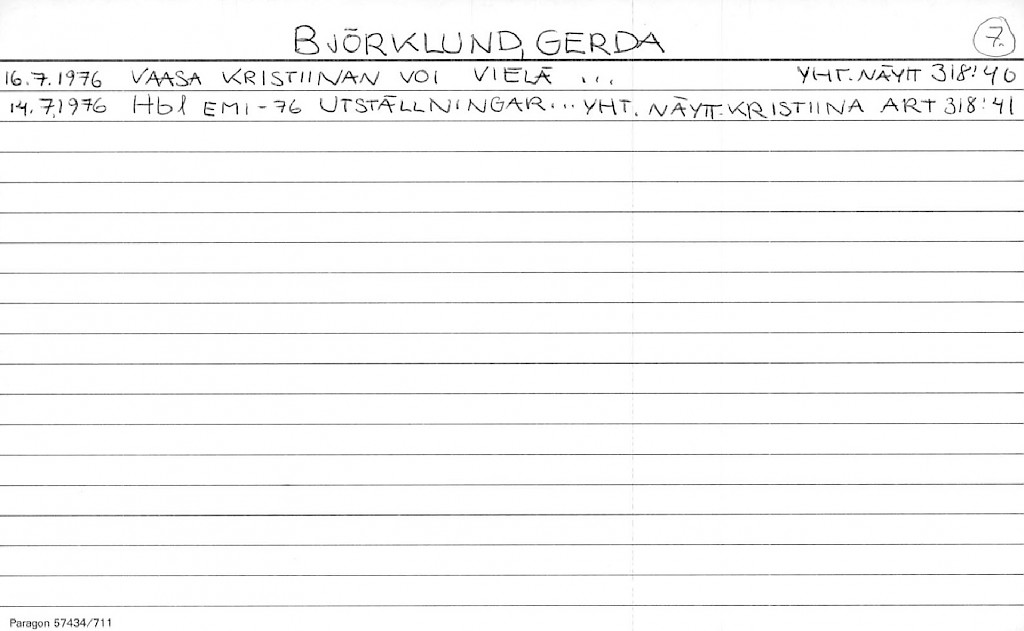 BJÖRKLUND, GERDA 7.
16.7.1976 VAASA KRISTIINAN VOI VIELÄ ... YHT. NÄYTT 318:40
14.7.1976 Hbl EMI-76 UTSTÄLLNINGAR... YHT. NÄYTT. KRISTIINA ART 318:41
Paragon 57434/711